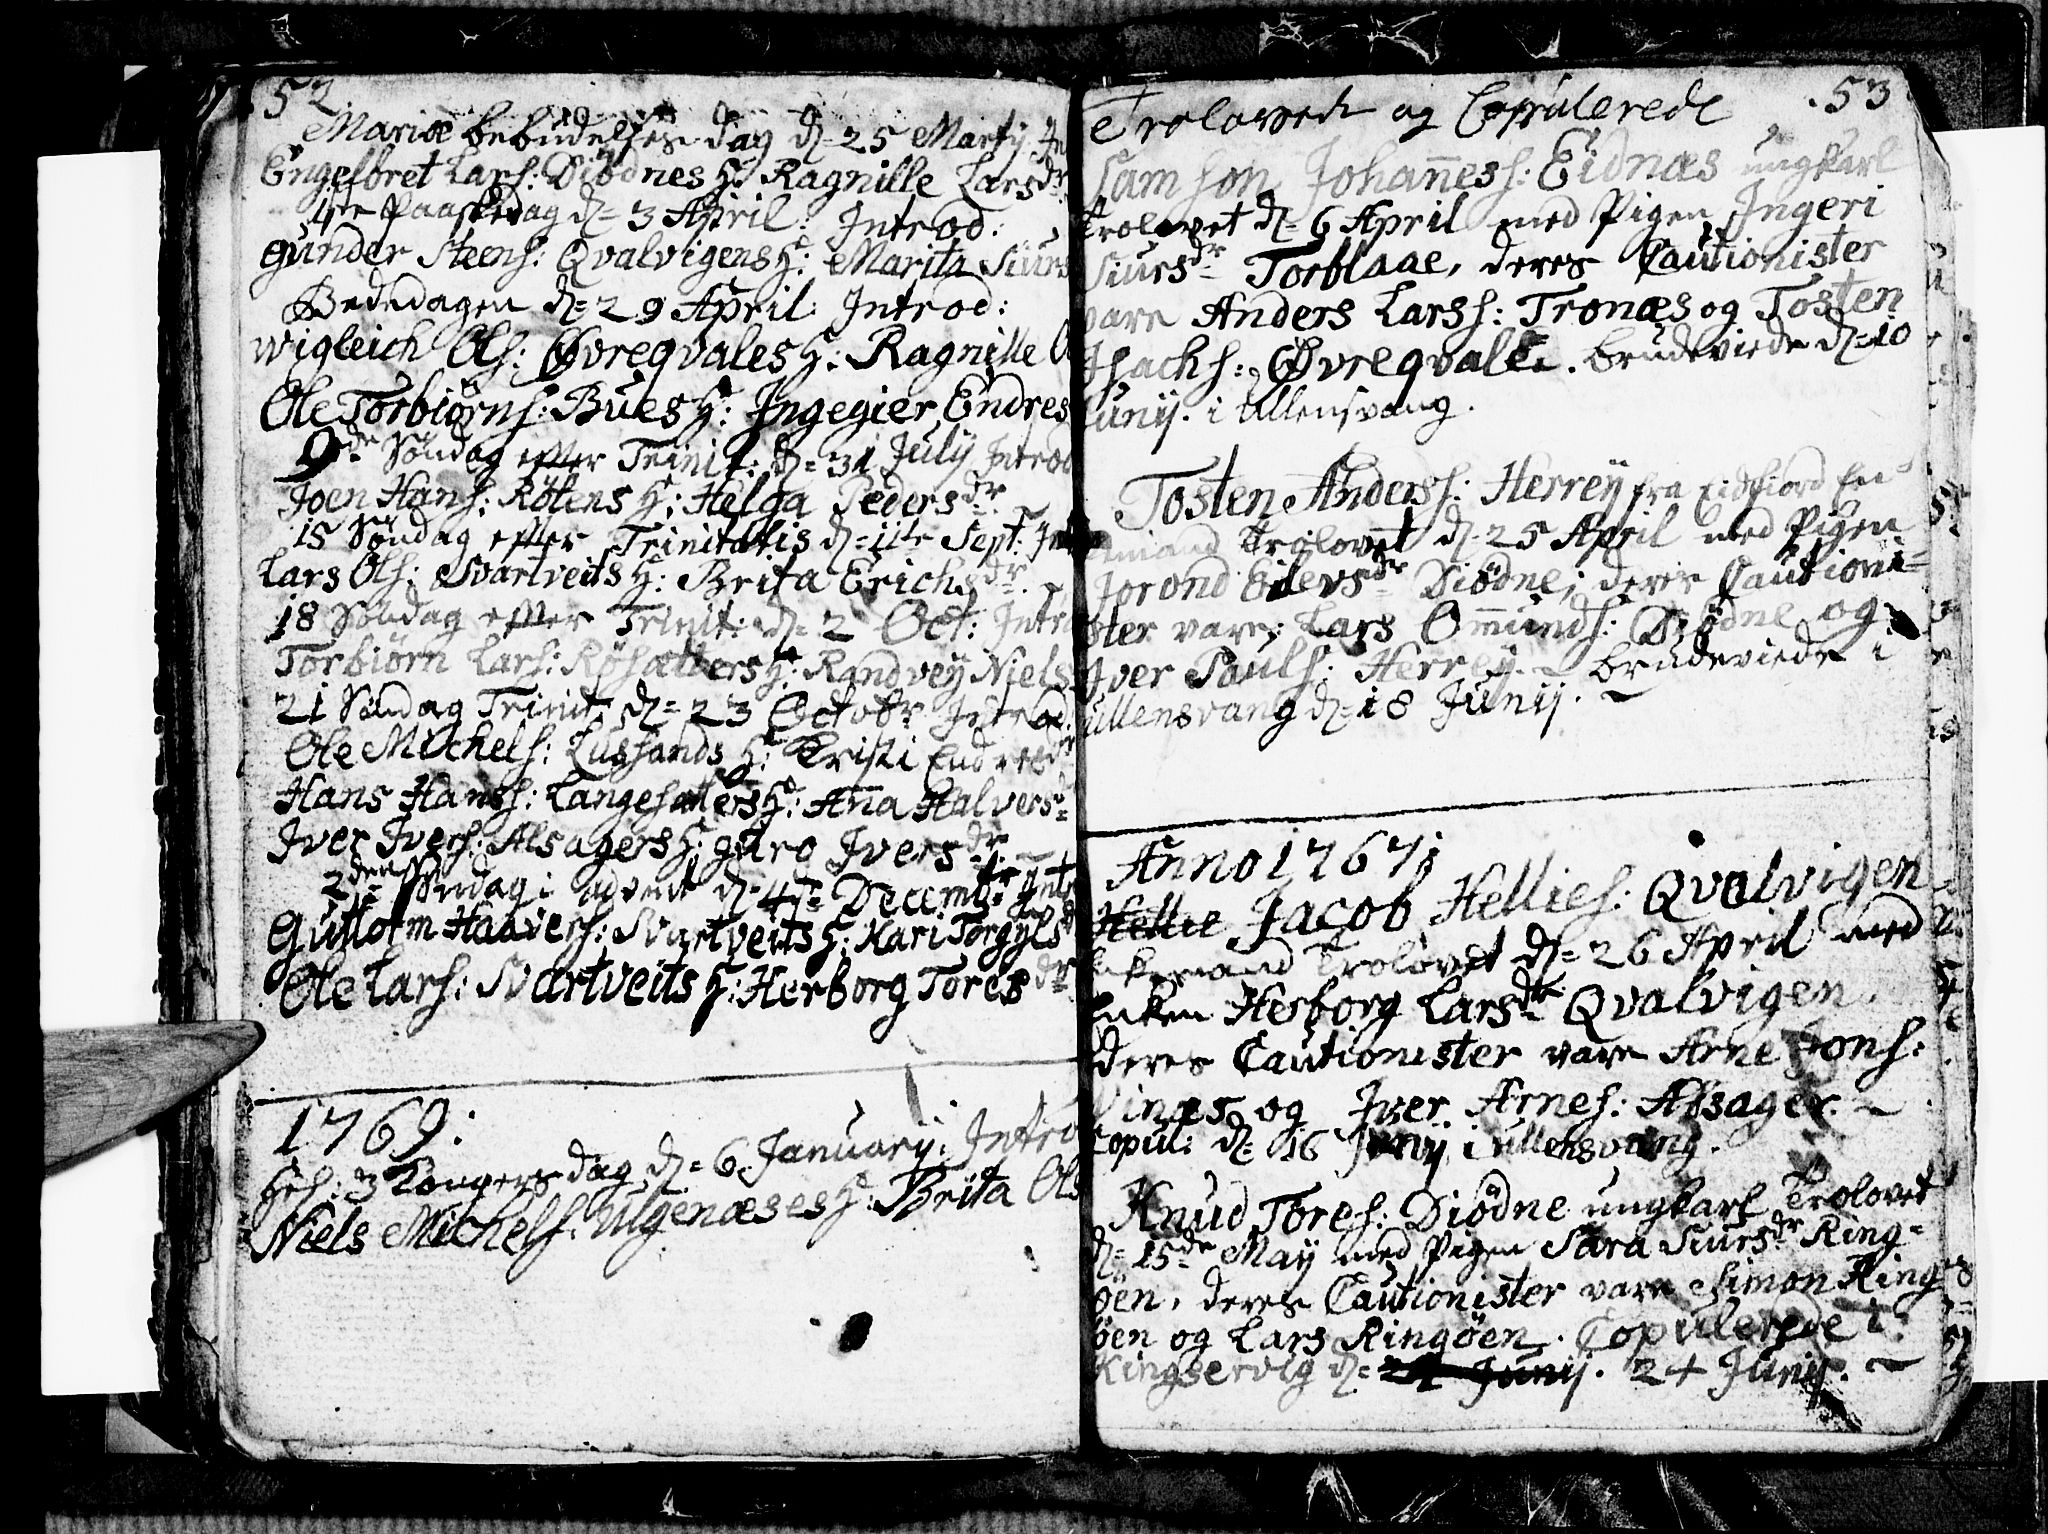 52.
Mariæ bebudelses dag d= 25 Martij
Engelbret Lars: Diödnes H: Ragnille Larsdr
4de Paaskedag d= 3 April: Introd:
Gunder Steens: Qvalvigens H: Marita Siurs
Bededagen d= 29 April: Introd:
Wigleich Ols: Øvreqvales H: Ragnille
Ole Torbiørns: Bues H: Ingegier Endres
9de Søndag efter Trinit: d= 31 July Introd
Joen Hans: Rötens H: Helga Pedersdr
15 Søndag efter Trinitatis d= 11te Sept:
Lars Ols: Svartveits H: Brita Erichsdr.
18 Søndag efter Trinit: d= 2 Oct: Intro
Torbiørn Lars: Røsætters H: Randvey Niels
21 Søndag Trinit d= 23 Octobr Introd
Ole Michels: Lussands H: Kristi Endresdr
Hans Hanss: Langesætters H: Aña Halvers=
Iver Ivers: Alsagers H: guro Iversdr.
2den Søndag i advent d= 4de Decembr Int
Guttorm Haavers: Svartveits H: Kari Torgyls
Ole Lars: Svartveits H: Herborg Toresdr
1769:
Hel: 3 Kongers dag d= 6 January: Intro
Niels Michels: Ulgenæses H: Brita Ols
Trolovede og Copulerede .53
Samson Johañess: Eidnæs ungkarl
trolovet d= 6 April med Pigen Ingeri
Siursdr Torblaae, deres Cautionister
vare Anders Larss: Tronæs og Tosten
Isachs: Øvreqvale. brudeviede d= 10
Junij. i Ullensvang.
Tosten Anderss: Herreÿ fra Eidfiord En
kemand Trolovet d= 25 April med Pigen
Jorond Eilevsdr Diödne; deres Cautioni=
ster vare; Lars Om̃unds: Diödne og
Iver Pouls: Herreÿ. brudeviede i
ullensvang d= 18 Junij.
Anno 1767
Hellie Jacob Hellies: Qvalvigen
Enkemand Trolovet d= 26 April med
Enken Herborg Larsdr Qvalvigen.
deres Cautionister vare Arne Jons:
Vinæs og Iver Arnes: Alsager.
Copul: d= 16 Junij i ullensvang.
Knud Tores: Diödne ungkarl Trolovet
d= 15de May med Pigen Sara Siursdr Ring=
öen, deres Cautionister vare Simon Ring
öen og Lars Ringöen. Copulerede i
Kingservig d= 24 Junij. 24 Junij.